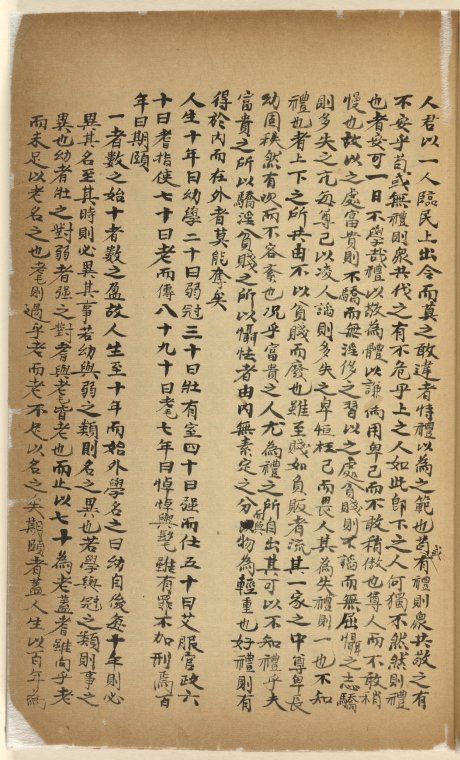 人君以一人臨民上出令而莫之敢違者恃禮以為之範也苟或有禮則衆共敬之有
不安乎苟或無禮則衆共伐之有不危乎上之人如此卽下之人何獨不然然則禮
也者安可一日不學哉禮以敬為體以謙為用卑己而不敢稍傲也尊人而不敢稍
慢也故以之處富貴則不驕而無淫侈之習以之處貧賤則不謟而無屈懾之志驕
則多失之亢每尊己以凌人謟則多失之卑恒枉己而畏人其為失禮則一也不知
禮也者上下之所共由不以貧賤而廢也雖至賤如負販者流其一家之中尊卑長
幼固秩然有次而不容紊也况乎富貴之人尤為禮之所自出其可以不知禮乎夫
富貴之所以驕淫貧賤之所以懾怯者由內無素定之分而與物為輕重也好禮則有
得於內而在外者莫能奪矣
人生十年曰幼學二十曰弱冠三十曰壯有室四十曰强而仕五十曰艾服官政六
十曰耆指使七十曰老而傳八十九十曰耄七年曰悼悼與耄雖有罪不加刑焉百
年曰期頤
一者數之始十者數之盈故人生至十年而始外學名之曰幼自後每十年則必
異其名至其時則必異其事若幼與弱之類則名之異也若學與冠之類則事之
異也幼者壯之對弱者强之對耆與耄皆老也而止以七十為老蓋耆雖向乎老
而未足以老名之也耄則過乎老而老不足以名之矣期頤者蓋人生以百年為